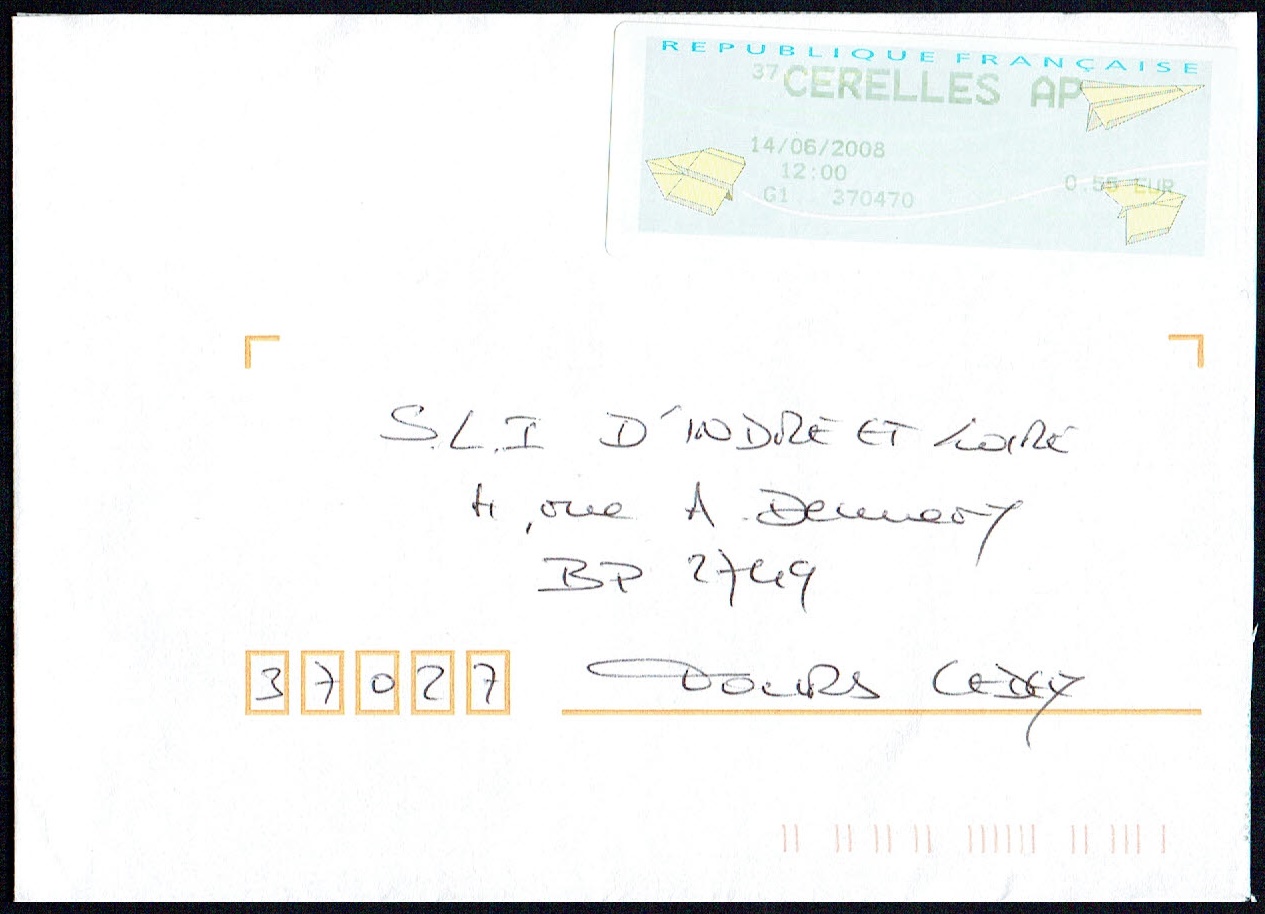 REPUBLIQUE FRANÇAISE
37 CERELLES AP
14/06/2008
12:00
0.55 EUR
G1 370470
S.L.I D'INDRE ET LOIRE
4, rue A. Dennery
BP 2749
37027 TOURS CEDEX